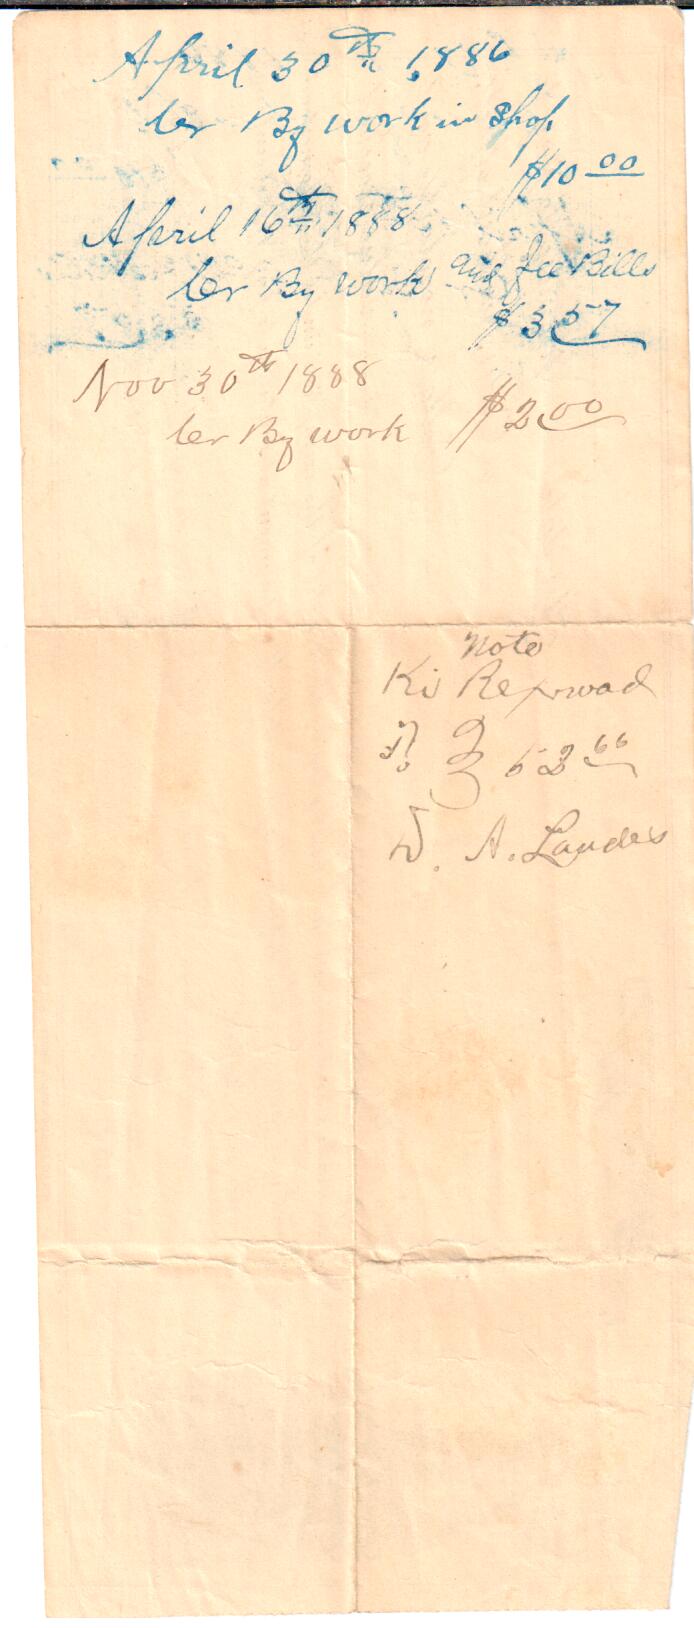 April 30th 1886
Cr By work in Shop
$10 00
April 16th 1888
Cr By work and Ice Bills
$3 57
Nov 30th 1888
Cr By work $2 00
Note
Ki Rexroad
52 66
D. A. Landes